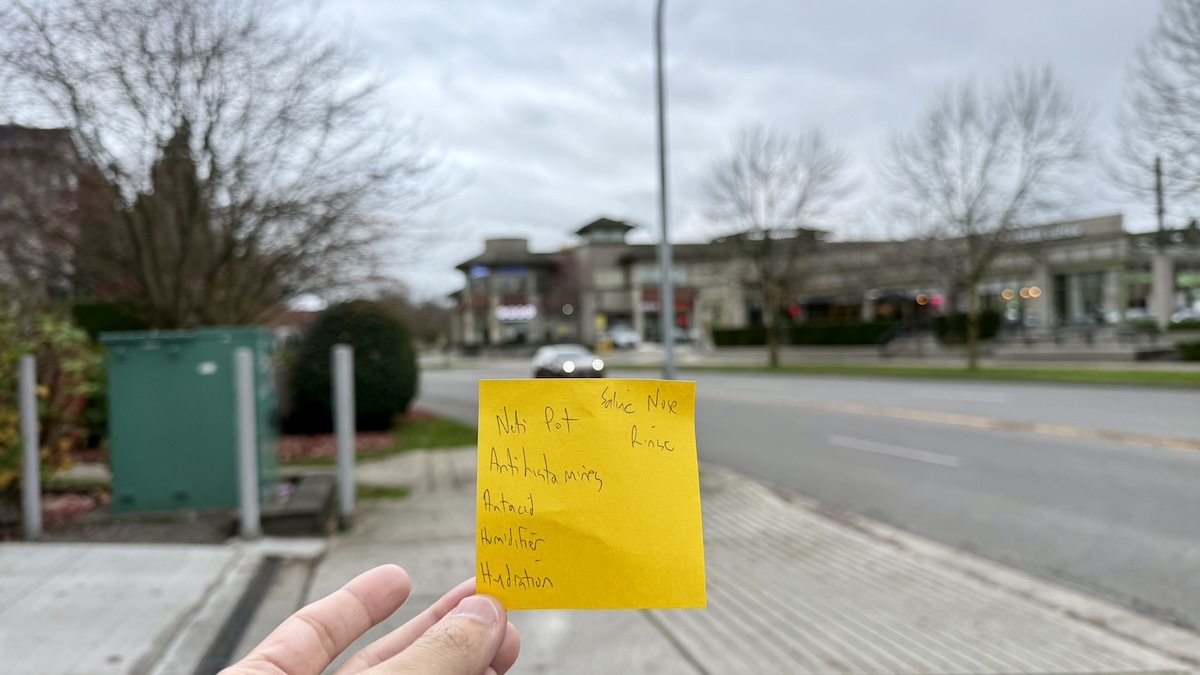 Neti Pot
Saline Nose
Rinse
Antihistamines
Antacid
Humidifier
Hydration